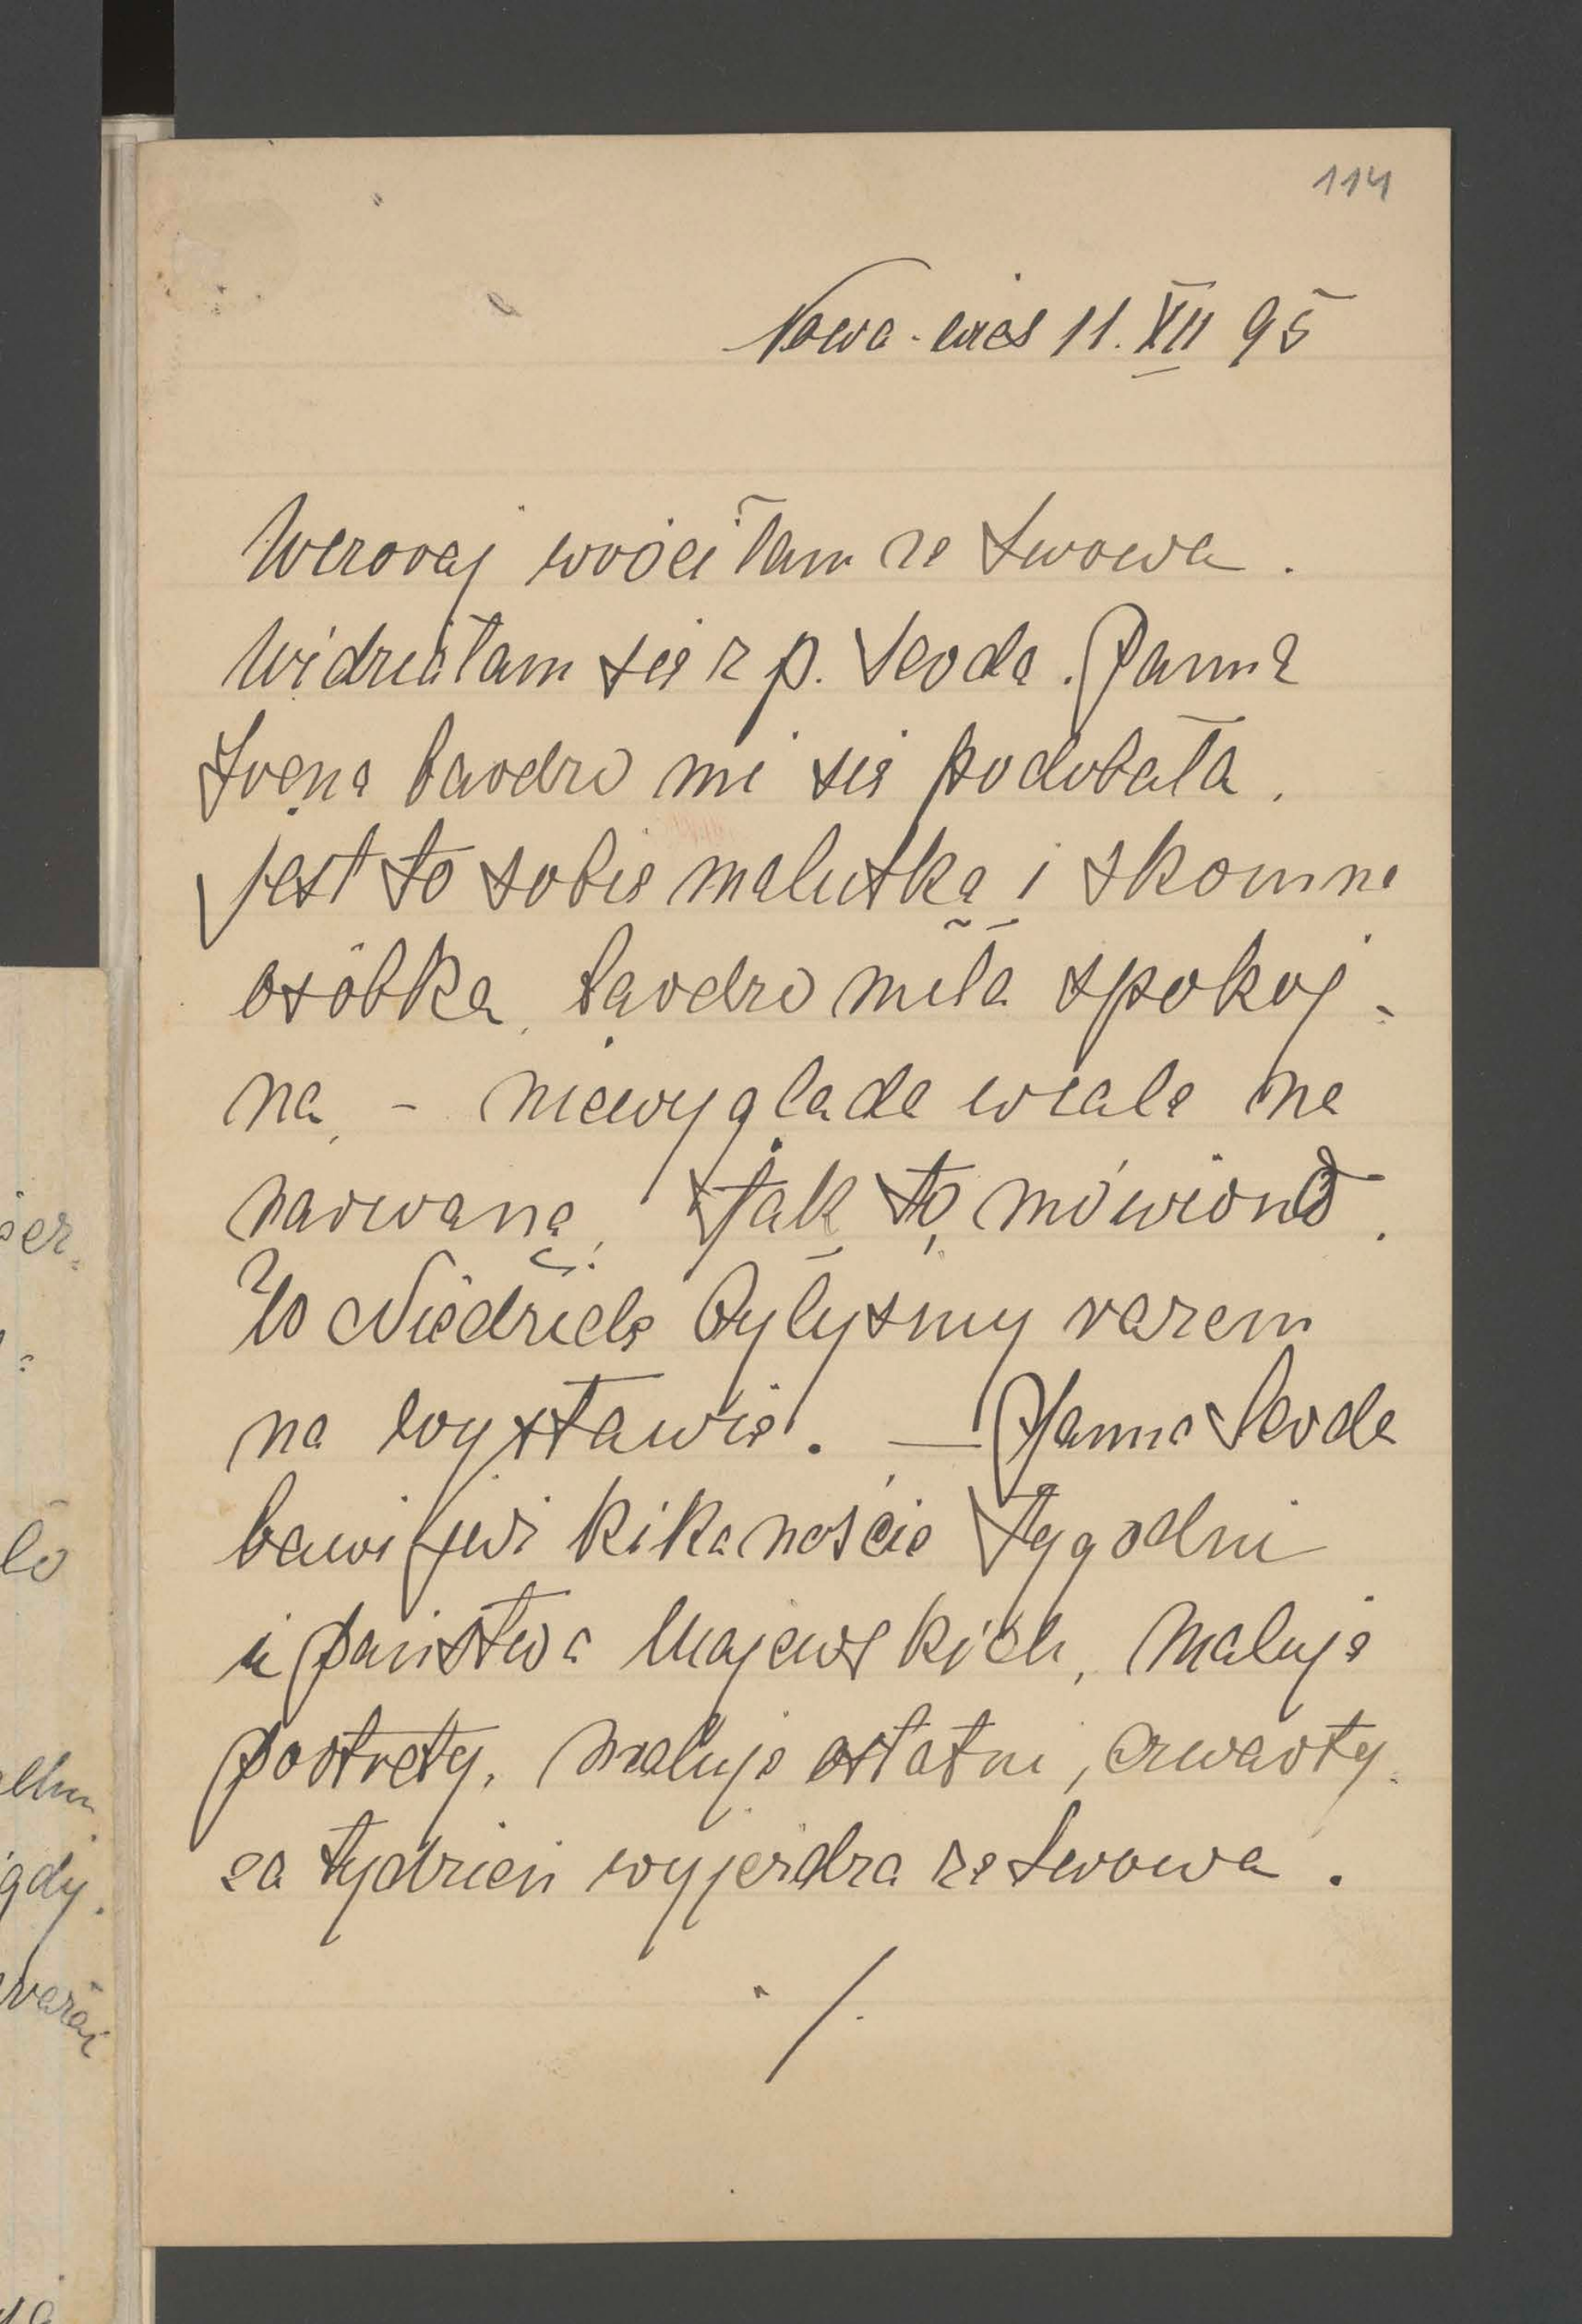 114
Nowa-wieś 11. XII 95
Wczoraj wróciłam ze Lwowa.
Widziałam się z p. Serda. Panna
Irena bardzo mi się podobała.
jest to sobie malutka i skromna
osóbka, bardzo miła spokoj-
na, - niewyglada wcale na
narwaną, tak to mówiono.
W Niedziele byłyśmy razem
na wystawie. — Panna Serda
bawi już kikanaście tygodni
u państwa Majewskich, maluje
portrety, maluje ostatni, czwarty.
za tydzień wyjeżdza ze Lwowa.
./.
ser-
ło
gdy.